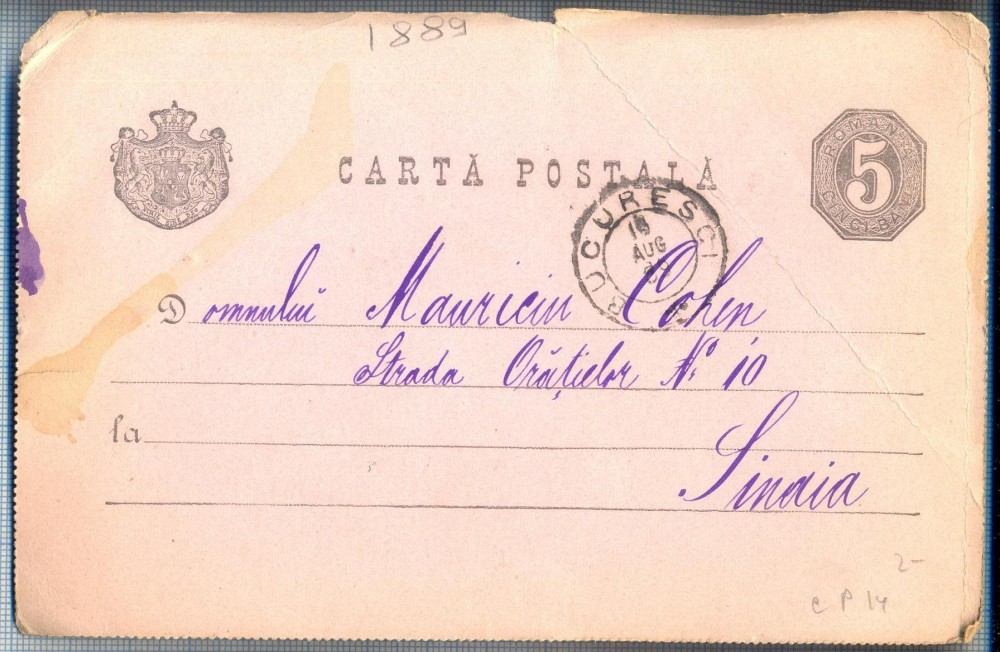 1889
CARTĂ POSTALĂ
ROMANIA
5
CINCI BANI
BUCURESCI
19
AUG
Domnului Mauriciu Cohen
Strada Orătielor No 10
la
Sinaia
2-
C P 14